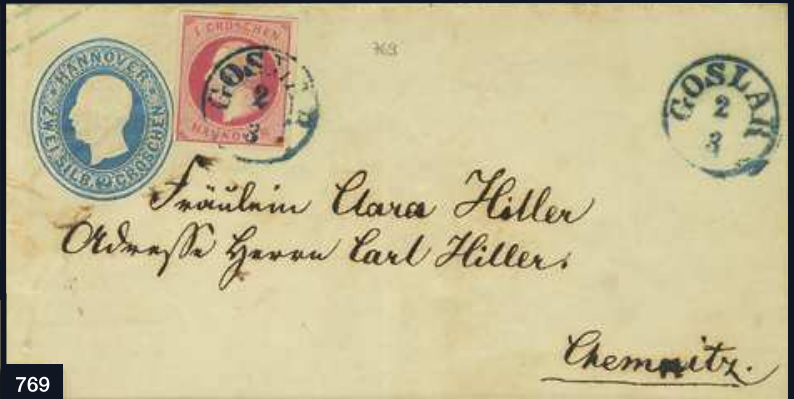 HANNOVER
ZWEI SILB. 2 GROSCHEN
1 GROSCHEN
HANNOVER
GOSLAR
2
3
769
GOSLAR
2
3
Fräulein Clara Hiller
Adresse Herrn Carl Hiller.
Chemnitz.
769